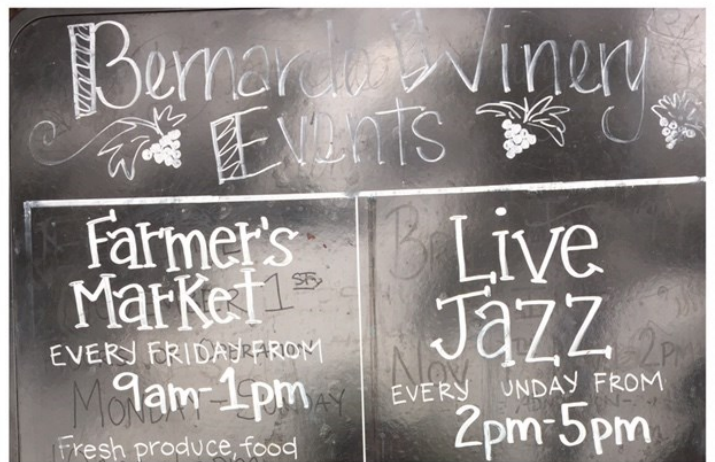 Bernardo Winery
Events
Farmer's
Market
EVERY FRIDAY FROM
9am-1pm
Fresh produce, food
Live
Jazz
EVERY UNDAY FROM
2pm-5pm